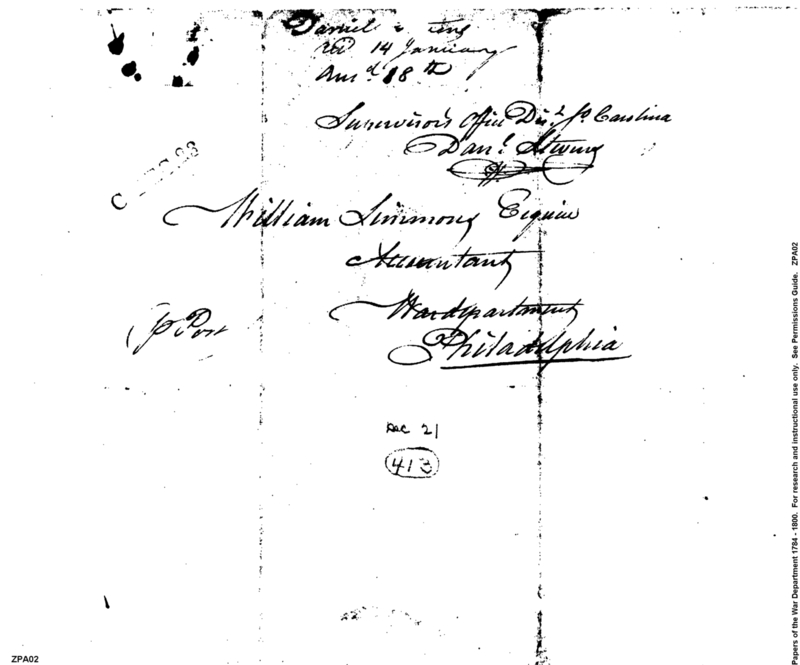 Daniel
recd 14 January
Ansd 18th
Supervisor's Office Dist So Carolina
Danl Stevens
C DEC 23
William Simmons Esquire
Accountant
War department
Philadelphia
p Post
Dec 21
413
Papers of the War Department 1784 - 1800. For research and instructional use only. See Permissions Guide. ZPA02
ZPA02